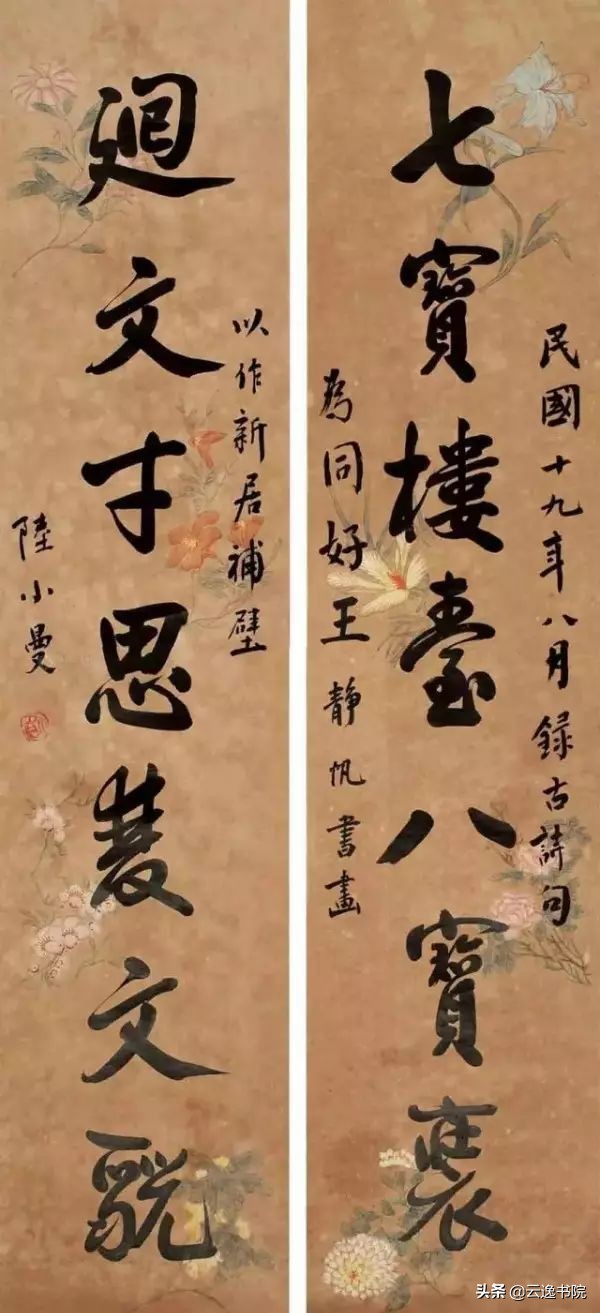 民國十九年八月録古詩句
七寶樓臺八寶裝
為同好王靜帆書畫
以作新居補壁
廻文才思雙文貌
陸小曼
头条@云逸书院